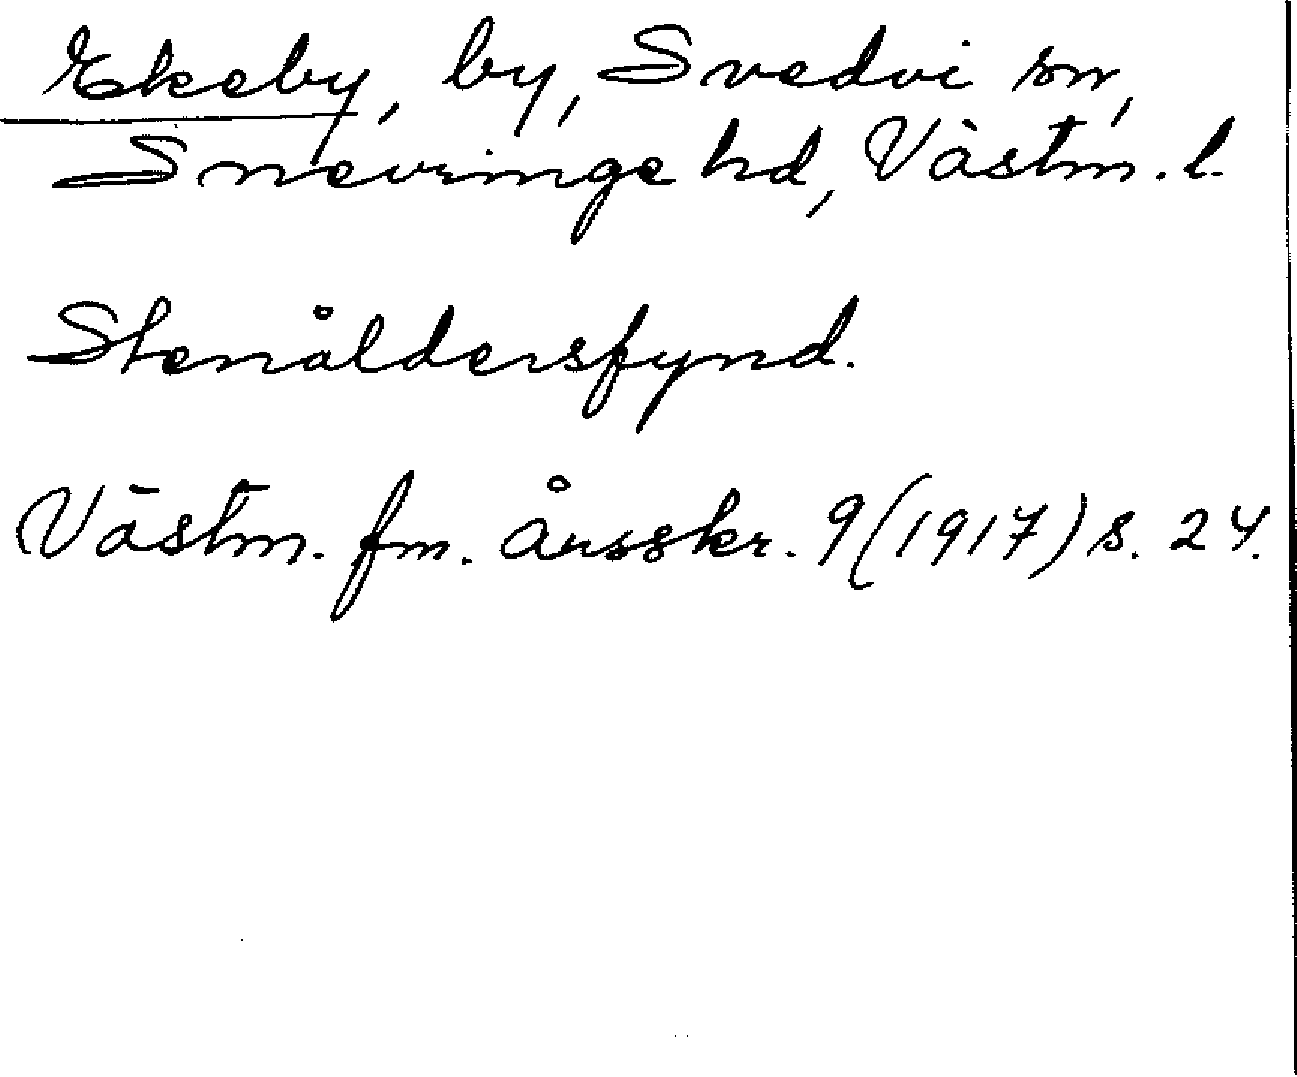 Ekeby, by, Svedvi sn,
Snevringe hd, Västm. l.
Stenåldersfynd.
Västm. fm. årsskr. 9 (1917) s. 24.